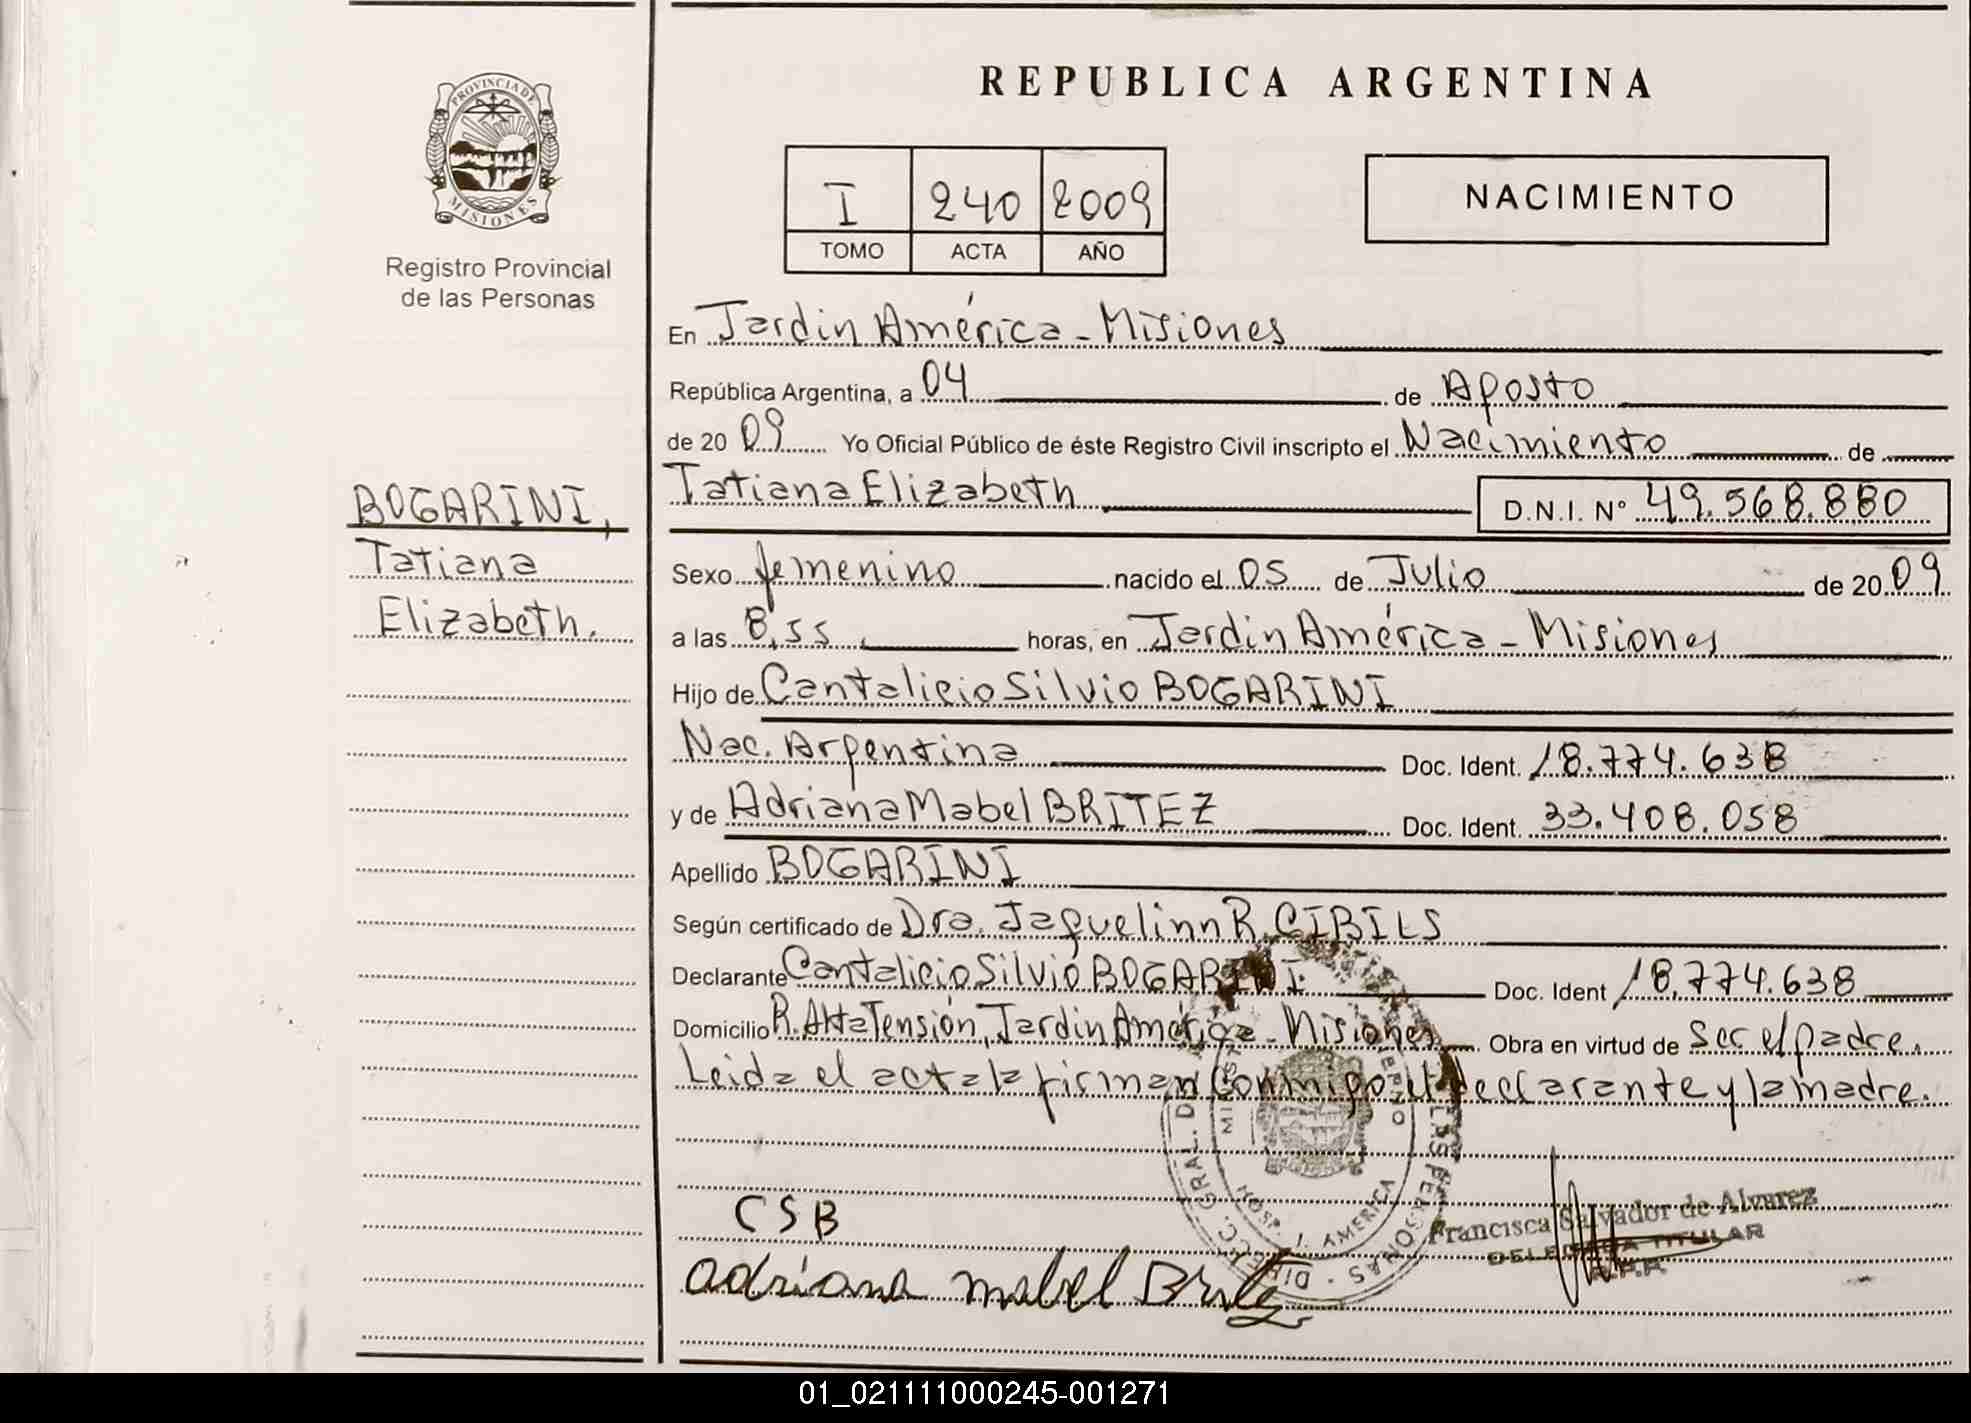 PROVINCIA DE
MISIONES
Registro Provincial
de las Personas
BOGARINI,
Tatiana
Elizabeth.
REPUBLICA ARGENTINA
I 240 2009
TOMO ACTA AÑO
NACIMIENTO
En Jardin América - Misiones
República Argentina, a 04 de Agosto
de 20 09 Yo Oficial Público de éste Registro Civil inscripto el Nacimiento de
Tatiana Elizabeth D.N.I. Nº 49.568.880
Sexo femenino nacido el 05 de Julio de 20 09
a las 8,55 horas, en Jardin América - Misiones
Hijo de Cantalicio Silvio BOGARINI
Nac. Argentina Doc. Ident. 18.774.638
y de Adriana Mabel BRITEZ Doc. Ident. 33.408.058
Apellido BOGARINI
Según certificado de Dra. Jaquelinn R. CIBILS
Declarante Cantalicio Silvio BOGARINI Doc. Ident 18.774.638
Domicilio R. Alta Tensión, Jardin América - Misiones Obra en virtud de Ser el padre.
Leida el acta la firman conmigo el declarante y la madre.
CSB
adriana mabel Britez
Francisca Salvador de Alvarez
DELEGADA TITULAR
R.P.P.
01_021111000245-001271